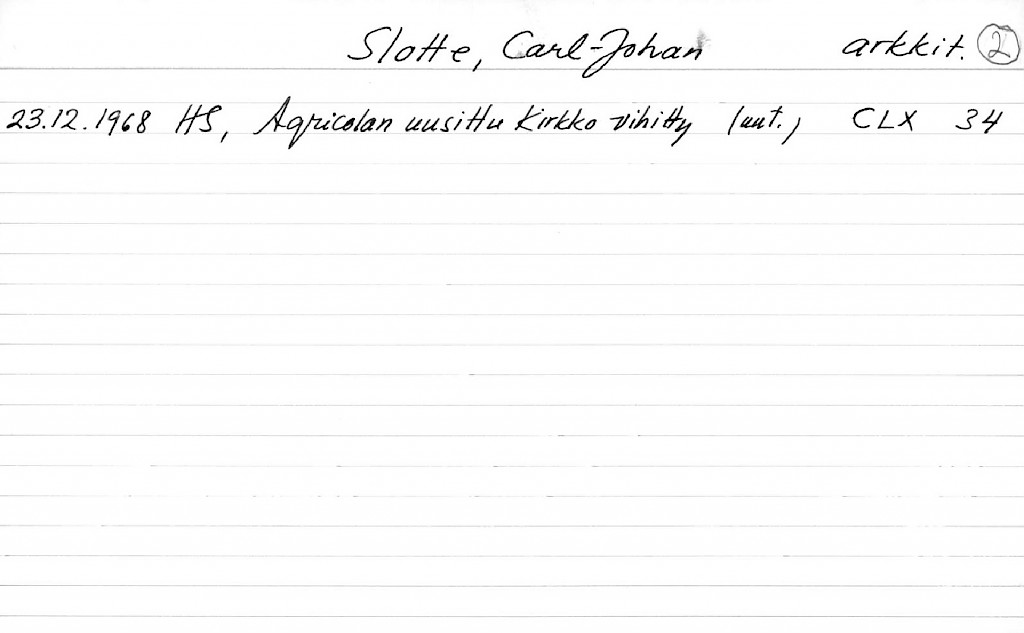 Slotte, Carl-Johan arkkit. 2
23.12.1968 HS, Agricolan uusittu kirkko vihitty (uut.) CLX 34